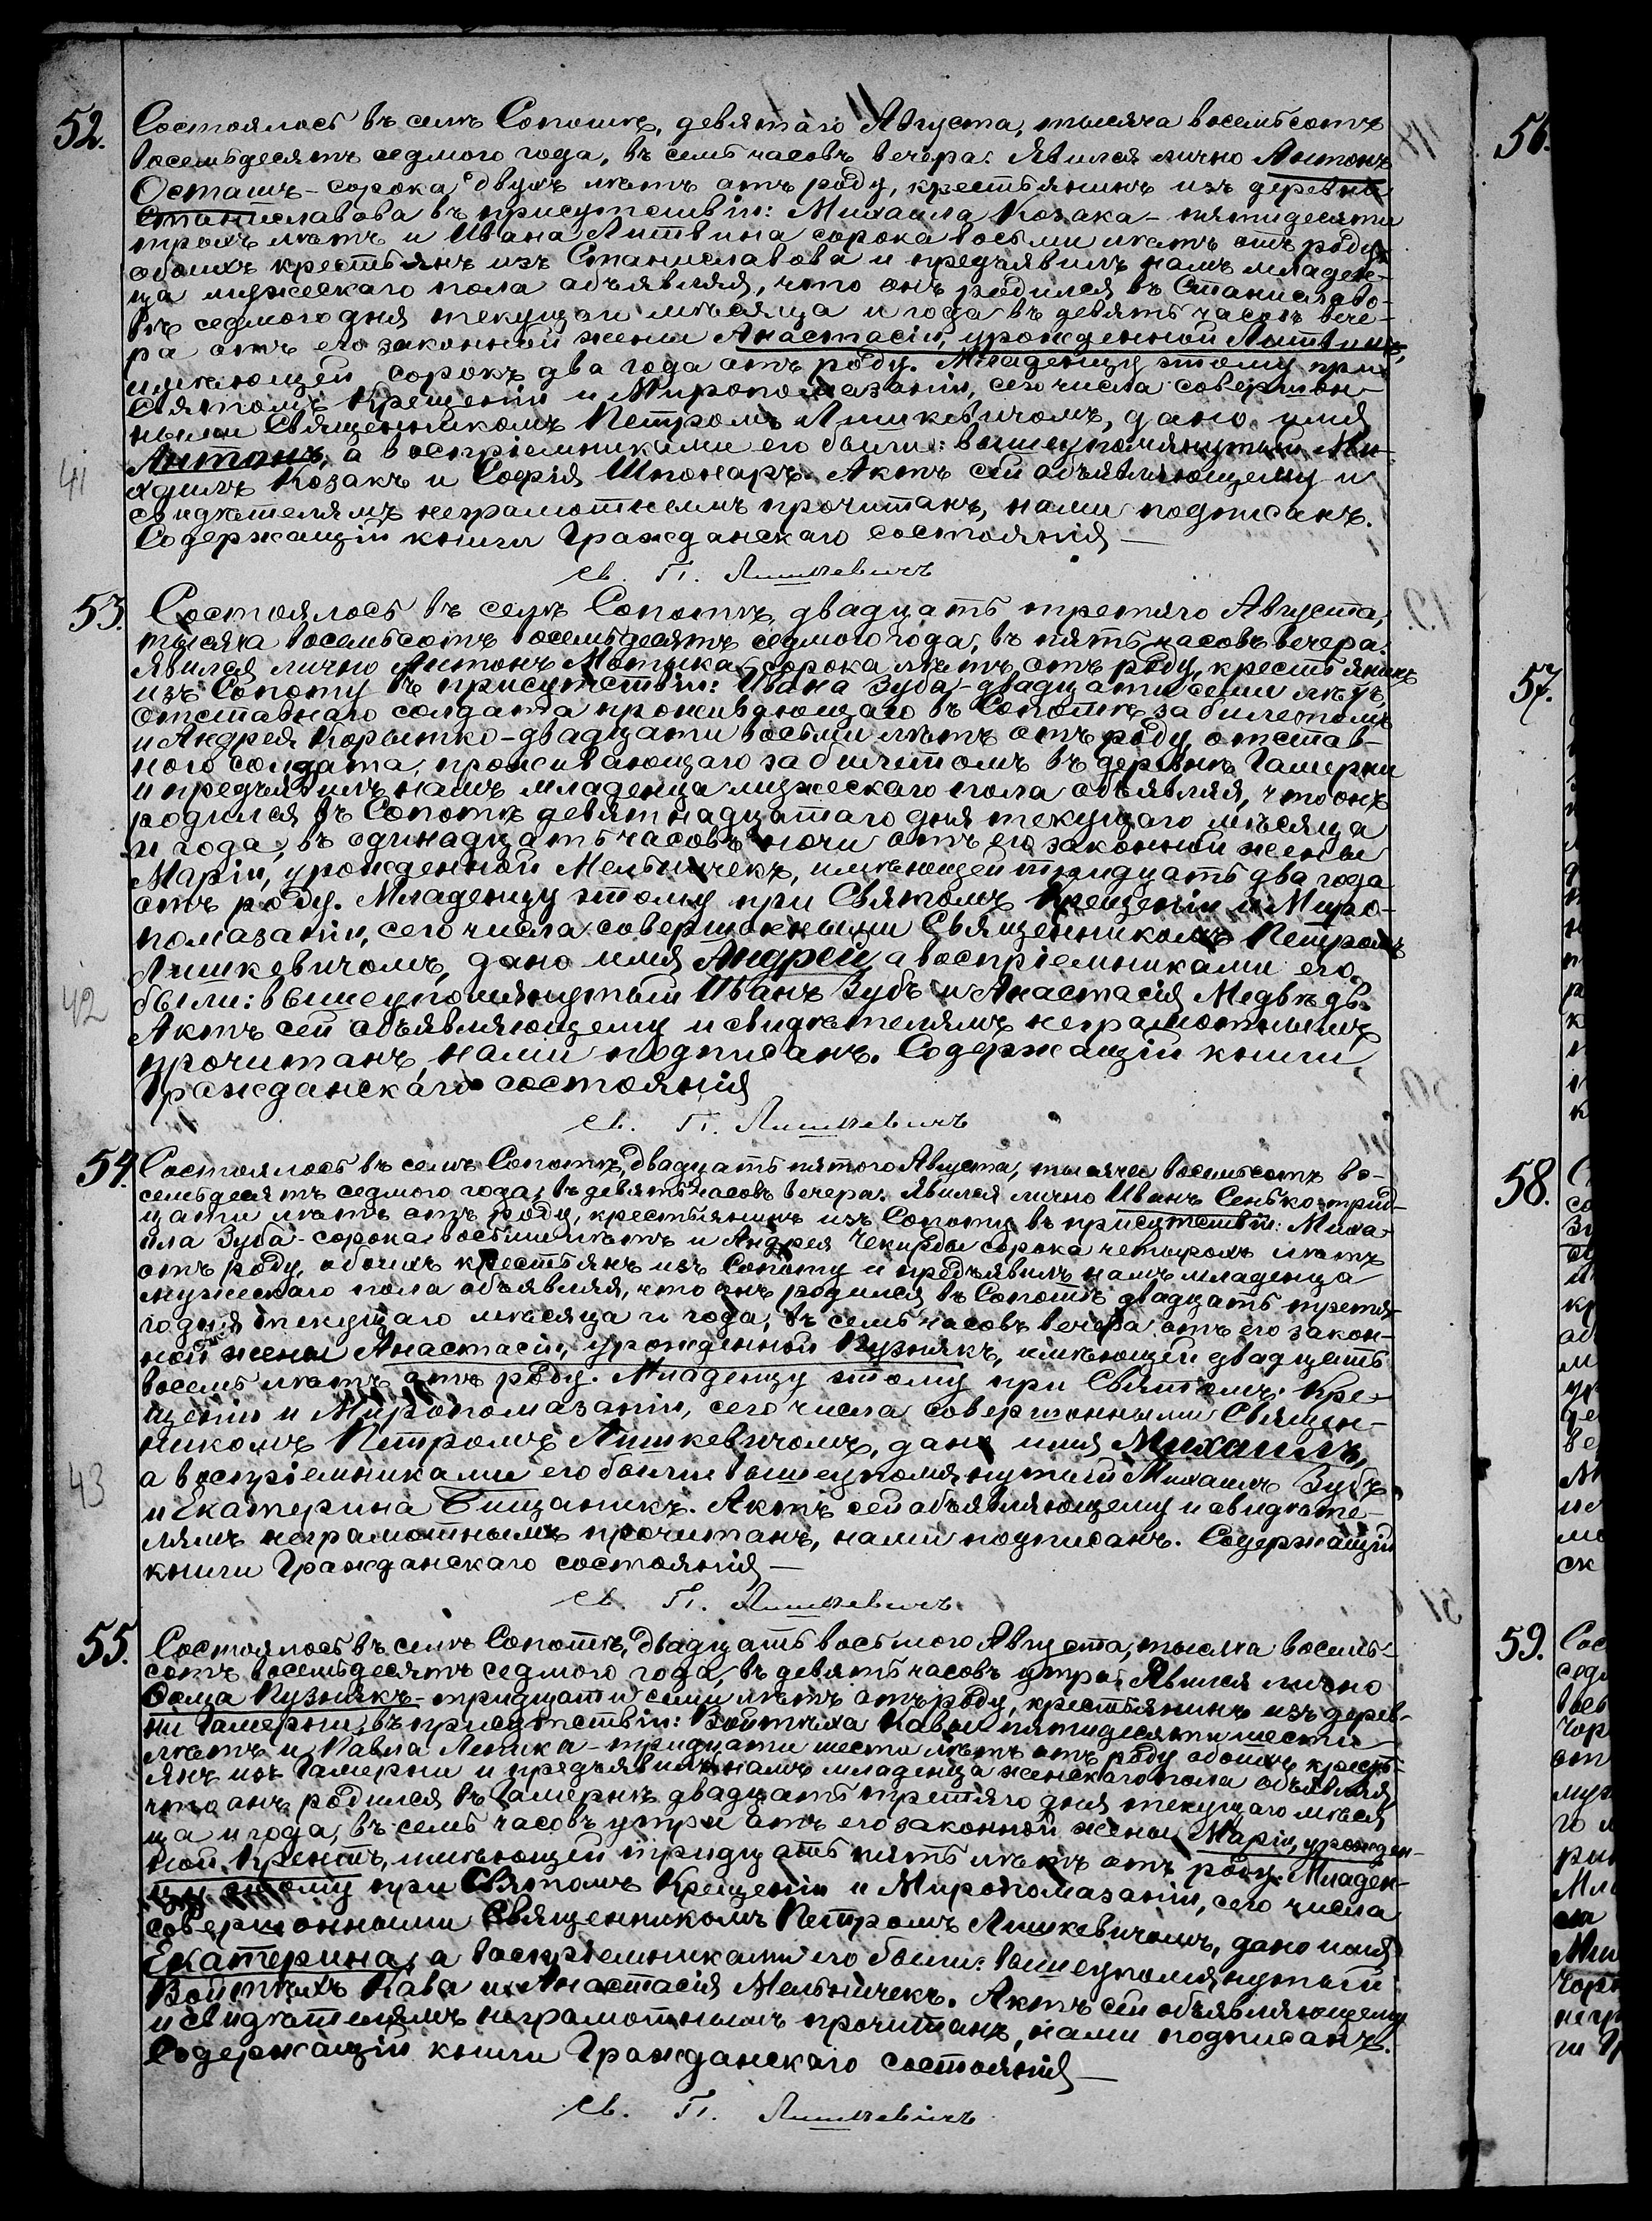 52.
Состоялось въ селѣ Сопотѣ, девятаго Августа, тысяча восемьсотъ
восемьдесятъ седмого года, въ семь часовъ вечера. Явился лично Антонъ
Осташъ - сорока двухъ лѣтъ отъ роду, крестьянинъ изъ деревни
Станиславова въ присутствіи: Михаила Козака - пятидесяти
трохъ лѣтъ и Ивана Литвина сорока восьми лѣтъ отъ роду,
обоихъ крестьянъ изъ Станиславова и предъявилъ намъ младен-
ца мужескаго пола объявляя, что онъ родился въ Станиславо-
вѣ седмого дня текущаго мѣсяца и года въ девять часовъ вече-
ра отъ его законной жены Анастасіи, урожденной Литвинъ,
имѣющей сорокъ два года отъ роду. Младенцу этому при
Святомъ Крещеніи и Миропомазаніи, сего числа совершон-
ными Священникомъ Петромъ Лишкевичомъ, дано имя
Антонъ, а воспріемниками его были: вышеупомянутый Ми-
хаилъ Козакъ и Софія Шпонаръ. Актъ сей объявляющему и
41
свидѣтелямъ неграмотнымъ прочитанъ, нами подписанъ.
Содержащій книги Гражданскаго состоянія —
Св. П. Лишкевичъ
53.
Состоялось въ селѣ Сопотѣ, двадцать третяго Августа,
тысяча восемьсотъ восемьдесятъ седмого года, въ пять часовъ вечера.
Явился лично Антонъ Мотыка - сорока лѣтъ отъ роду, крестьянинъ
изъ Сопоту въ присутствіи: Ивана Зуба - двадцати семи лѣтъ,
отставнаго солдата проживающаго въ Сопотѣ за билетомъ
и Андрея Корытко - двадцати восьми лѣтъ отъ роду, отстав-
ного солдата, проживающаго за билетомъ въ деревнѣ Гамерни
и предъявилъ намъ младенца мужескаго пола объявляя, что онъ
родился въ Сопотѣ девятнадцатаго дня текущаго мѣсяца
и года, въ одинадцать часовъ ночи отъ его законной жены
Маріи, урожденной Мельничекъ, имѣющей тридцать два года
отъ роду. Младенцу этому при Святомъ Крещеніи и Миро-
помазаніи, сего числа совершонными Священникомъ Петромъ
Лишкевичомъ, дано имя Андрей, а воспріемниками его
были: вышеупомянутый Иванъ Зубъ и Анастасія Медвѣдь.
42
Актъ сей объявляющему и свидѣтелямъ неграмотнымъ
прочитанъ, нами подписанъ. Содержащій книги
Гражданскаго состоянія
Св. П. Лишкевичъ
54.
Состоялось въ селѣ Сопотѣ, двадцать пятого Августа, тысяча восемьсотъ во-
семьдесятъ седмого года, въ девять часовъ вечера. Явился лично Иванъ Сенько - трид-
цати лѣтъ отъ роду, крестьянинъ изъ Сопоту въ присутствіи: Миха-
ила Зуба - сорока восьми лѣтъ и Андрея Чекирды сорока четырохъ лѣтъ
отъ роду, обоихъ крестьянъ изъ Сопоту и предъявилъ намъ младенца
мужескаго пола объявляя, что онъ родился въ Сопотѣ двадцать третя-
го дня текущаго мѣсяца и года, въ семь часовъ вечера отъ его закон-
ной жены Анастасіи, урожденной Кузнякъ, имѣющей двадцать
восемь лѣтъ отъ роду. Младенцу этому при Святомъ Кре-
щеніи и Миропомазаніи, сего числа совершонными Священ-
никомъ Петромъ Лишкевичомъ, дано имя Михаилъ,
43
а воспріемниками его были: вышеупомянутый Михаилъ Зубъ
и Екатерина Бищаникъ. Актъ сей объявляющему и свидѣте-
лямъ неграмотнымъ прочитанъ, нами подписанъ. Содержащій
книги Гражданскаго состоянія —
Св. П. Лишкевичъ
55.
Состоялось въ селѣ Сопотѣ, двадцать восьмого Августа, тысяча восемь-
сотъ восемьдесятъ седмого года, въ девять часовъ утра. Явился лично
Фома Кузнякъ - тридцати семи лѣтъ отъ роду, крестьянинъ изъ дерев-
ни Гамерни, въ присутствіи: Войтѣха Кавы пятидесяти шести
лѣтъ и Павла Лепика - тридцати шести лѣтъ отъ роду обоихъ кресть-
янъ изъ Гамерни и предъявилъ намъ младенца женскаго пола объявляя
что онъ родился въ Гамернѣ двадцать третяго дня текущаго мѣся-
ца и года, въ семь часовъ утра отъ его законной жены Маріи, урожден-
ной Кренть, имѣющей тридцать пять лѣтъ отъ роду. Младен-
цу этому при Святомъ Крещеніи и Миропомазаніи, сего числа
совершонными Священникомъ Петромъ Лишкевичомъ, дано имя
Екатерина, а воспріемниками его были: вышеупомянутый
Войтѣхъ Кава и Анастасія Мельничекъ. Актъ сей объявляющему
и свидѣтелямъ неграмотнымъ прочитанъ, нами подписанъ.
Содержащій книги Гражданскаго состоянія —
Св. П. Лишкевичъ
56.
57.
58.
59.